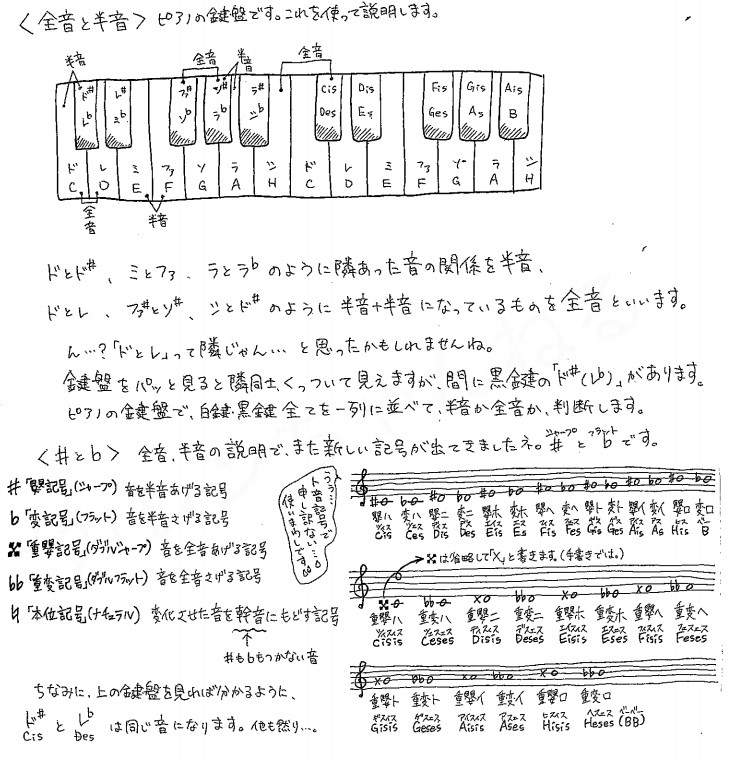 ＜全音と半音＞ ピアノの鍵盤です。これを使って説明します。
半音 全音 半音 全音
ド# レ# ファ# ソ# ラ# Cis Dis Fis Gis Ais
レb ミb ソb ラb シb Des Es Ges As B
ド レ ミ ファ ソ ラ シ ド レ ミ ファ ソ ラ シ
C D E F G A H C D E F G A H
全音 半音
ドとド#、ミとファ、ラとラbのように隣あった音の関係を半音、
ドとレ、ファ#とソ#、シとド#のように半音+半音になっているものを全音といいます。
ん…?「ドとレ」って隣じゃん…と思ったかもしれませんね。
鍵盤をパッと見ると隣同士くっついて見えますが、間に黒鍵の「ド#(レb)」があります。
ピアノの鍵盤で、白鍵・黒鍵全てを一列に並べて、半音か全音か、判断します。
＜#とb＞ 全音、半音の説明で、また新しい記号が出てきましたネ。#とbです。
シャープ フラット
# 「嬰記号」(シャープ) 音を半音あげる記号
b 「変記号」(フラット) 音を半音さげる記号
𝄪 「重嬰記号」(ダブルシャープ) 音を全音あげる記号
bb 「重変記号」(ダブルフラット) 音を全音さげる記号
♮ 「本位記号」(ナチュラル) 変化させた音を幹音にもどす記号
#もbもつかない音
ちなみに、上の鍵盤を見れば分かるように、
ド# と レb は同じ音になります。他も然り…。
Cis Des
うぅ…
ト音記号で
申し訳ない…。
使いまわしです
嬰ハ 変ハ 嬰ニ 変ニ 嬰ホ 変ホ 嬰ヘ 変ヘ 嬰ト 変ト 嬰イ 変イ 嬰ロ 変ロ
ツィス ツェス ディス デス エイス エス フィス フェス ギス ゲス アイス アス ヒス ベー
Cis Ces Dis Des Eis Es Fis Fes Gis Ges Ais As His B
𝄪は省略して「x」と書きます。(手書きでは。)
重嬰ハ 重変ハ 重嬰ニ 重変ニ 重嬰ホ 重変ホ 重嬰ヘ 重変ヘ
ツィスィス ツェスェス ディスィス デスェス エイスィス エスェス フィスィス フェスェス
Cisis Ceses Disis Deses Eisis Eses Fisis Feses
重嬰ト 重変ト 重嬰イ 重変イ 重嬰ロ 重変ロ
ギスィス ゲスェス アイスィス アスェス ヒスィス ヘスェス ベーベー
Gisis Geses Aisis Ases Hisis Heses (BB)